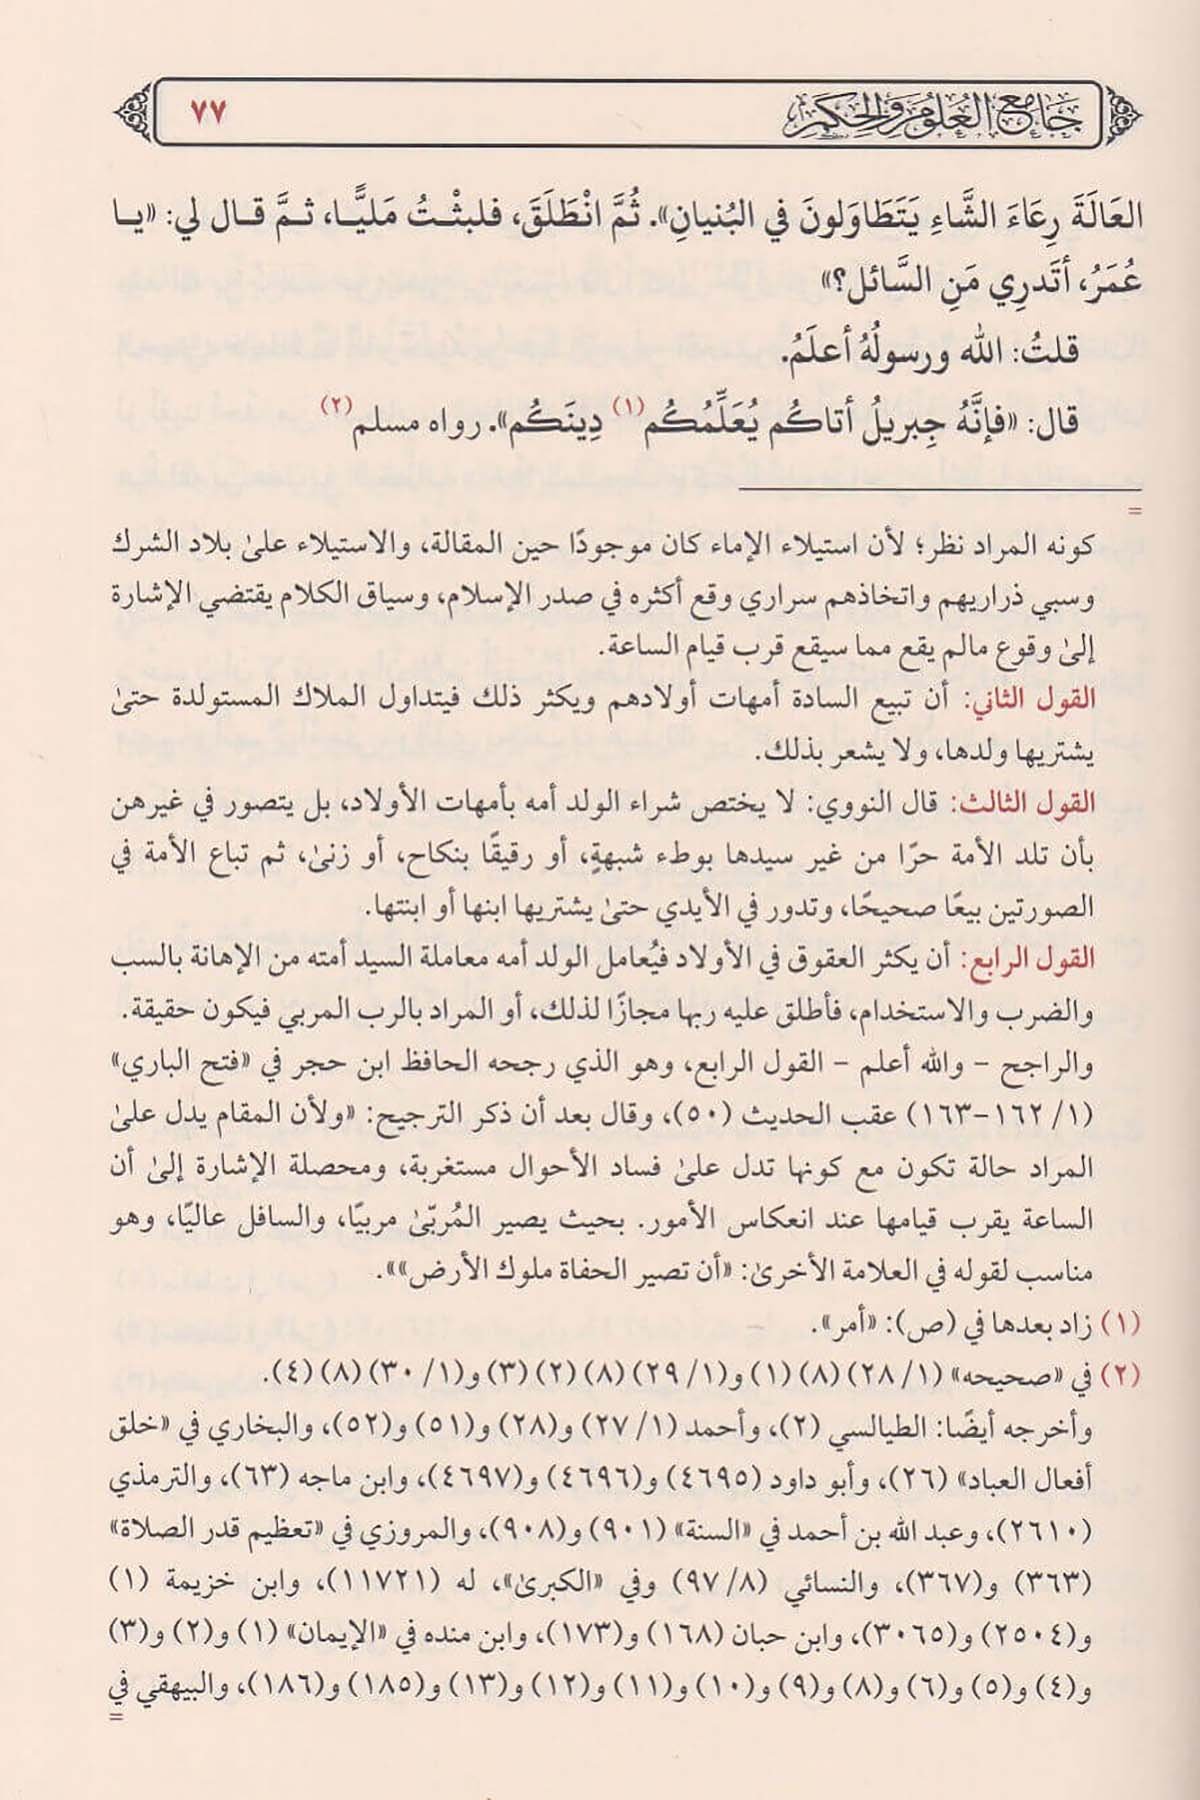 جامع العلوم والحكم ٧٧
العَالَةَ رِعَاءَ الشَّاءِ يَتَطَاوَلونَ في البُنيانِ». ثُمَّ انْطَلَقَ، فلبثْتُ مَليًّا، ثمَّ قال لي: «يا
عُمَرُ، أتَدرِي مَنِ السَّائل؟»
قلتُ: الله ورسولُهُ أعلَمُ.
قال: «فإنَّهُ جِبريلُ أتاكُم يُعَلِّمُكُم(١) دِينَكُم». رواه مسلم(٢)
=
كونه المراد نظر؛ لأن استيلاء الإماء كان موجودًا حين المقالة، والاستيلاء علىٰ بلاد الشرك
وسبي ذراريهم واتخاذهم سراري وقع أكثره في صدر الإسلام، وسياق الكلام يقتضي الإشارة
إلىٰ وقوع مالم يقع مما سيقع قرب قيام الساعة.
القول الثاني: أن تبيع السادة أمهات أولادهم ويكثر ذلك فيتداول الملاك المستولدة حتىٰ
يشتريها ولدها، ولا يشعر بذلك.
القول الثالث: قال النووي: لا يختص شراء الولد أمه بأمهات الأولاد، بل يتصور في غيرهن
بأن تلد الأمة حرًا من غير سيدها بوطء شبهةٍ، أو رقيقًا بنكاح، أو زنىٰ، ثم تباع الأمة في
الصورتين بيعًا صحيحًا، وتدور في الأيدي حتىٰ يشتريها ابنها أو ابنتها.
القول الرابع: أن يكثر العقوق في الأولاد فيُعامل الولد أمه معاملة السيد أمته من الإهانة بالسب
والضرب والاستخدام، فأطلق عليه ربها مجازًا لذلك، أو المراد بالرب المربي فيكون حقيقة.
والراجح - والله أعلم - القول الرابع، وهو الذي رجحه الحافظ ابن حجر في «فتح الباري»
(١/ ١٦٢-١٦٣) عقب الحديث (٥٠)، وقال بعد أن ذكر الترجيح: «ولأن المقام يدل علىٰ
المراد حالة تكون مع كونها تدل علىٰ فساد الأحوال مستغربة، ومحصلة الإشارة إلىٰ أن
الساعة يقرب قيامها عند انعكاس الأمور. بحيث يصير المُربّىٰ مربيًا، والسافل عاليًا، وهو
مناسب لقوله في العلامة الأخرىٰ: «أن تصير الحفاة ملوك الأرض»».
(١) زاد بعدها في (ص): «أمر».
(٢) في «صحيحه» (١/ ٢٨) (٨) (١) و(١/ ٢٩) (٨) (٢) (٣) و(١/ ٣٠) (٨) (٤).
وأخرجه أيضًا: الطيالسي (٢)، وأحمد (١/ ٢٧) و(٢٨) و(٥١) و(٥٢)، والبخاري في «خلق
أفعال العباد» (٢٦)، وأبو داود (٤٦٩٥) و(٤٦٩٦) و(٤٦٩٧)، وابن ماجه (٦٣)، والترمذي
(٢٦١٠)، وعبد الله بن أحمد في «السنة» (٩٠١) و(٩٠٨)، والمروزي في «تعظيم قدر الصلاة»
(٣٦٣) و(٣٦٧)، والنسائي (٨/ ٩٧) وفي «الكبرىٰ»، له (١١٧٢١)، وابن خزيمة (١)
و(٢٥٠٤) و(٣٠٦٥)، وابن حبان (١٦٨) و(١٧٣)، وابن منده في «الإيمان» (١) و(٢) و(٣)
و(٤) و(٥) و(٦) و(٨) و(٩) و(١٠) و(١١) و(١٢) و(١٣) و(١٨٥) و(١٨٦)، والبيهقي في
=